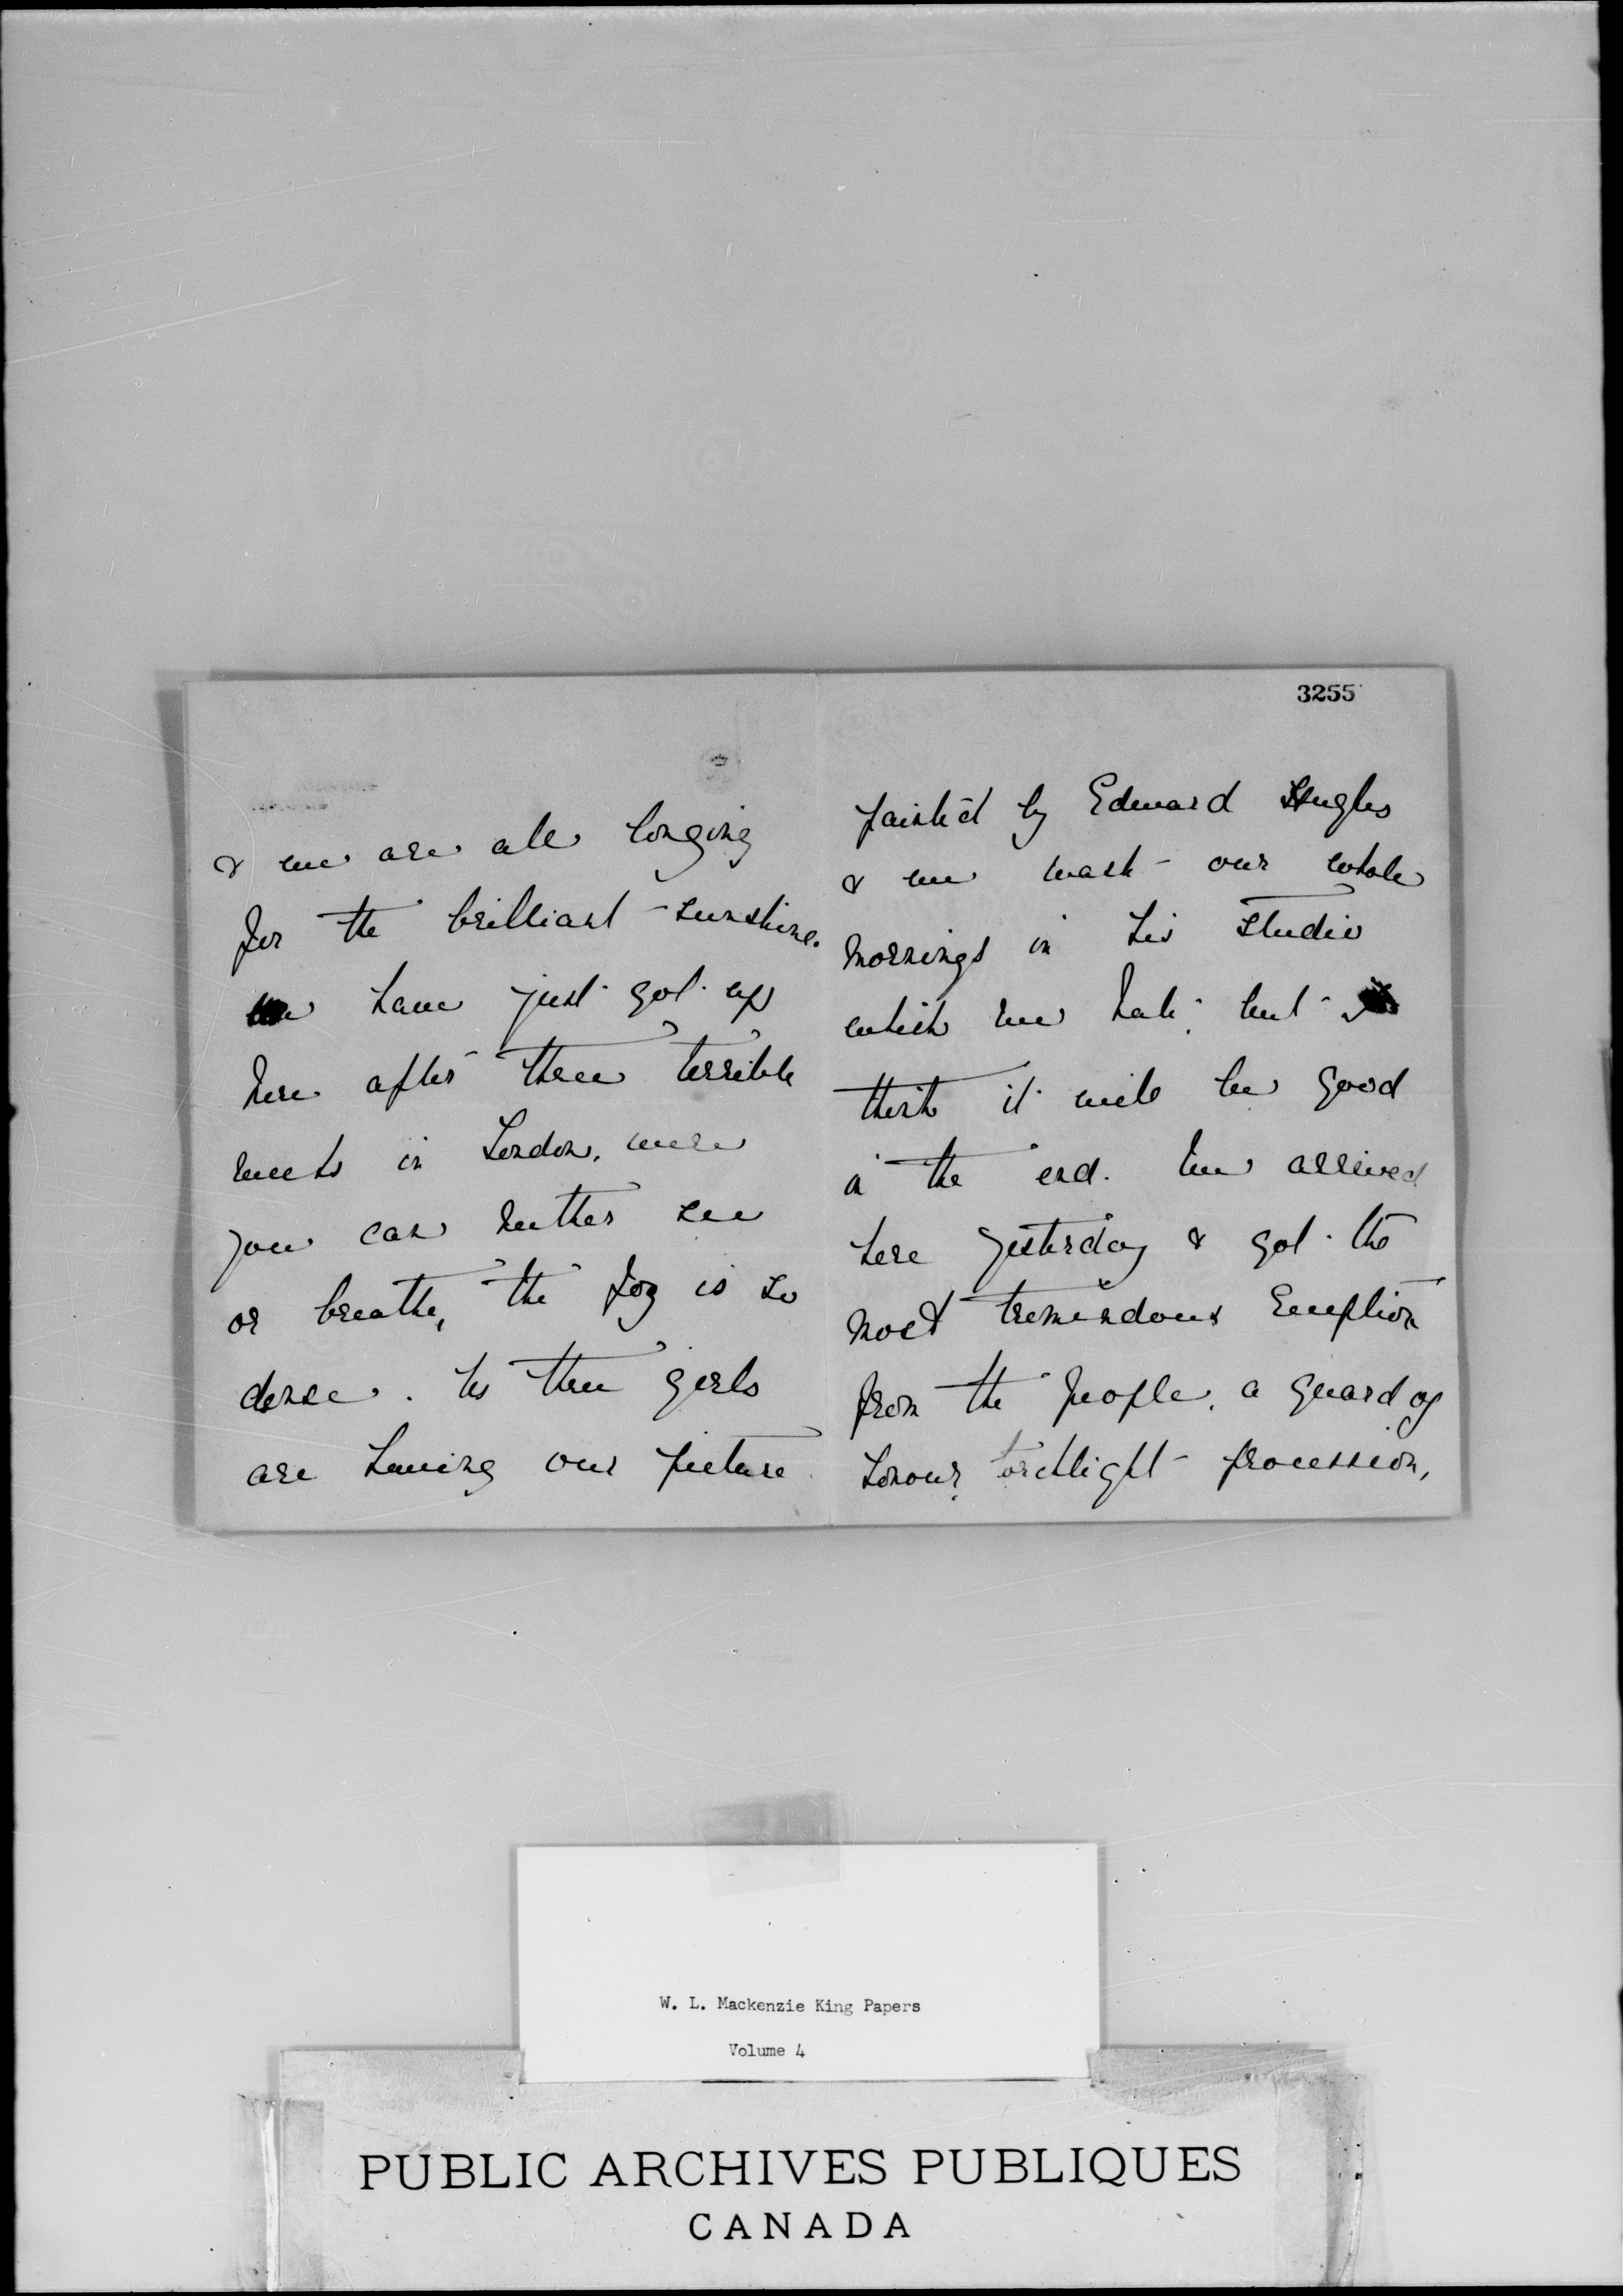 & we are all longing
for the brilliant sunshine.
We have just got up
here after three terrible
weeks in London, where
you can neither see
or breathe, the fog is so
dense. We three girls
are having our picture
3255
painted by Edward Hughes
& we waste our whole
mornings in his studio
which we hate, but
think it will be good
in the end. We arrived
here yesterday & got the
most tremendous reception
from the people, a guard of
honour, torchlight procession,
W. L. Mackenzie King Papers
Volume 4
PUBLIC ARCHIVES PUBLIQUES
CANADA